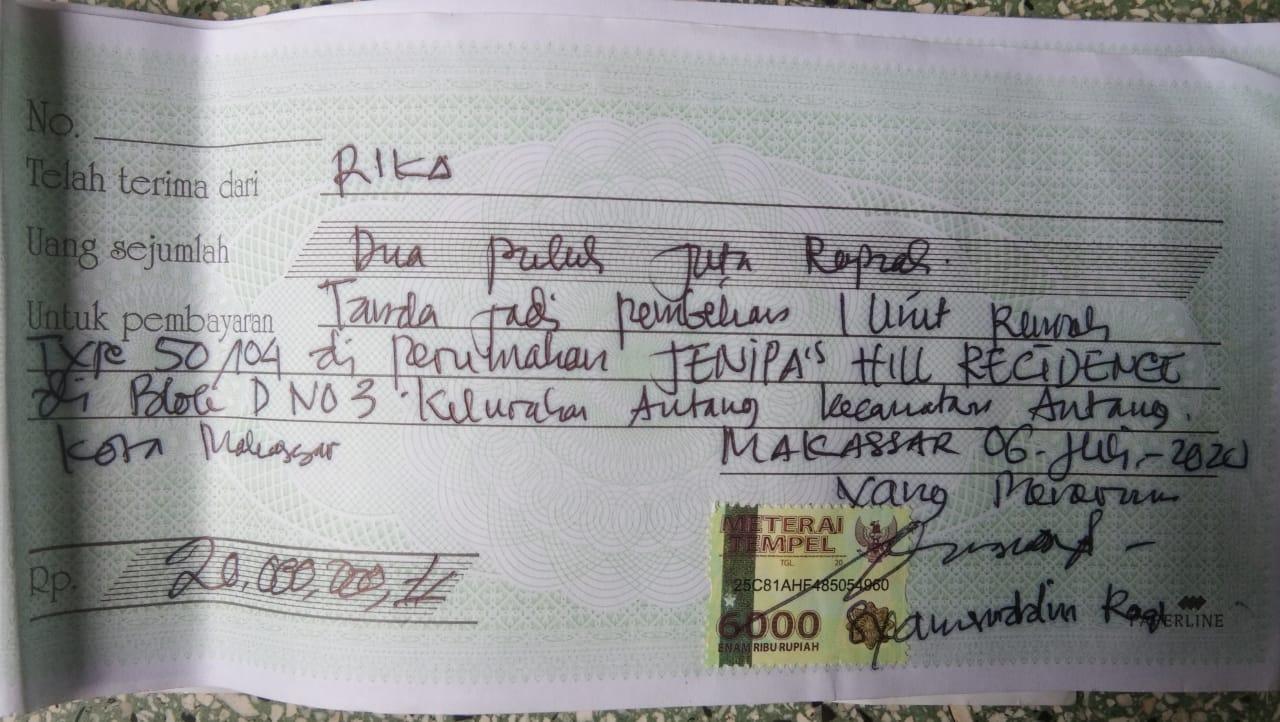 No.
Telah terima dari RIKA
Uang sejumlah Dua puluh juta Rupiah.
Untuk pembayaran Tanda jadi pembelian 1 Unit Rumah
TYPE 50/104 di perumahan JENIPA'S HILL RECIDENCE
di Blok D NO 3 Kelurahan Antang kecamatan Antang.
Kota Makassar
MAKASSAR 06-Juli-2020
Yang Menerima
METERAI
TEMPEL
TGL. 20
25C81AHF485054960
6000
ENAM RIBU RUPIAH
Rp. 20,000,000,
Syamsuddin
PAPERLINE